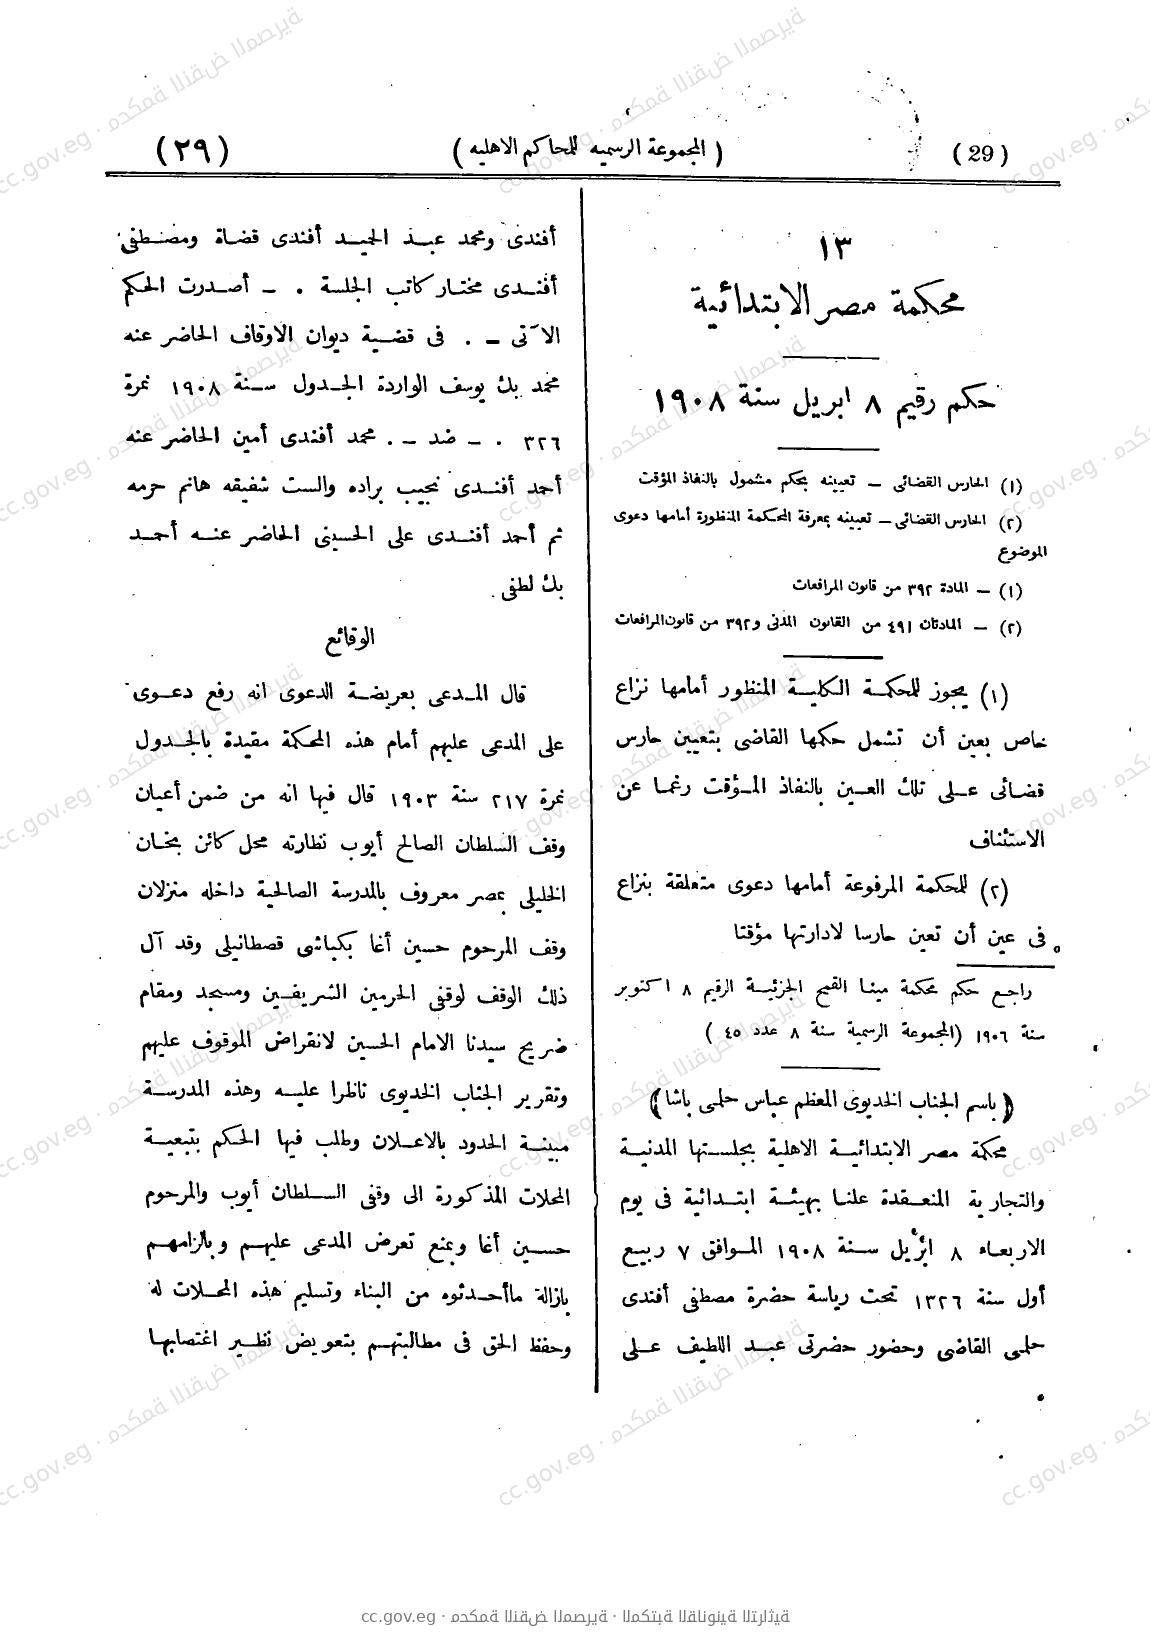 (29)
( المجموعة الرسميه للمحاكم الاهليه )
(٢٩)
١٣
محكمة مصر الابتدائية
حكم رقيم ٨ ابريل سنة ١٩٠٨
(١) الحارس القضائى – تعيينه بحكم مشمول بالنفاذ المؤقت
(٢) الحارس القضائى – تعيينه بمعرفة المحكمة المنظورة أمامها دعوى
الموضوع
(١) – المادة ٣٩٢ من قانون المرافعات
(٢) – المادتان ٤٩١ من القانون المدنى و٣٩٢ من قانون المرافعات
(١) يجوز للمحكمة الكلية المنظور أمامها نزاع
خاص بعين أن تشمل حكمها القاضى بتعيين حارس
قضائى على تلك العين بالنفاذ المؤقت رغما عن
الاستئناف
(٢) للمحكمة المرفوعة أمامها دعوى متعلقة بنزاع
فى عين أن تعين حارسا لادارتها مؤقتا
راجع حكم محكمة مينا القمح الجزئية الرقيم ٨ اكتوبر
سنة ١٩٠٦ (المجموعة الرسمية سنة ٨ عدد ٤٥ )
( باسم الجناب الخديوى المعظم عباس حلمى باشا )
محكمة مصر الابتدائية الاهلية بجلستها المدنية
والتجارية المنعقدة علنا بهيئة ابتدائية فى يوم
الاربعاء ٨ ابريل سنة ١٩٠٨ الموافق ٧ ربيع
أول سنة ١٣٢٦ تحت رياسة حضرة مصطفى أفندى
حلمى القاضى وحضور حضرتى عبد اللطيف على
أفندى ومحمد عبد الحيد أفندى قضاة ومصطفى
أفندى مختار كاتب الجلسة . – أصدرت الحكم
الآتى – . فى قضية ديوان الاوقاف الحاضر عنه
محمد بك يوسف الواردة الجدول سنة ١٩٠٨ نمرة
٣٢٦ . – ضد – . محمد أفندى أمين الحاضر عنه
أحمد أفندى نجيب براده والست شفيقه هانم حرمه
ثم أحمد أفندى على الحسينى الحاضر عنه أحمد
بك لطفى .
الوقائع
قال المدعى بعريضة الدعوى انه رفع دعوى
على المدعى عليهم أمام هذه المحكمة مقيدة بالجدول
نمرة ٢١٧ سنة ١٩٠٣ قال فيها انه من ضمن أعيان
وقف السلطان الصالح أيوب نظارته محل كائن بخان
الخليلى بمصر معروف بالمدرسة الصالحية داخله منزلان
وقف المرحوم حسين أغا بكباشى قصطانيلى وقد آل
ذلك الوقف لوقفى الحرمين الشريفين ومسجد ومقام
ضريح سيدنا الامام الحسين لانقراض الموقوف عليهم
وتقرير الجناب الخديوى ناظرا عليه وهذه المدرسة
مبينة الحدود بالاعلان وطلب فيها الحكم بتبعية
المحلات المذكورة الى وقفى السلطان أيوب والمرحوم
حسين أغا وبمنع تعرض المدعى عليهم وبالزامهم
بازالة ماأحدثوه من البناء وتسليم هذه المحلات له
وحفظ الحق فى مطالبتهم بتعويض نظير اغتصابها
cc.gov.eg · محكمة النقض المصرية · المكتبة القانونية التراثية